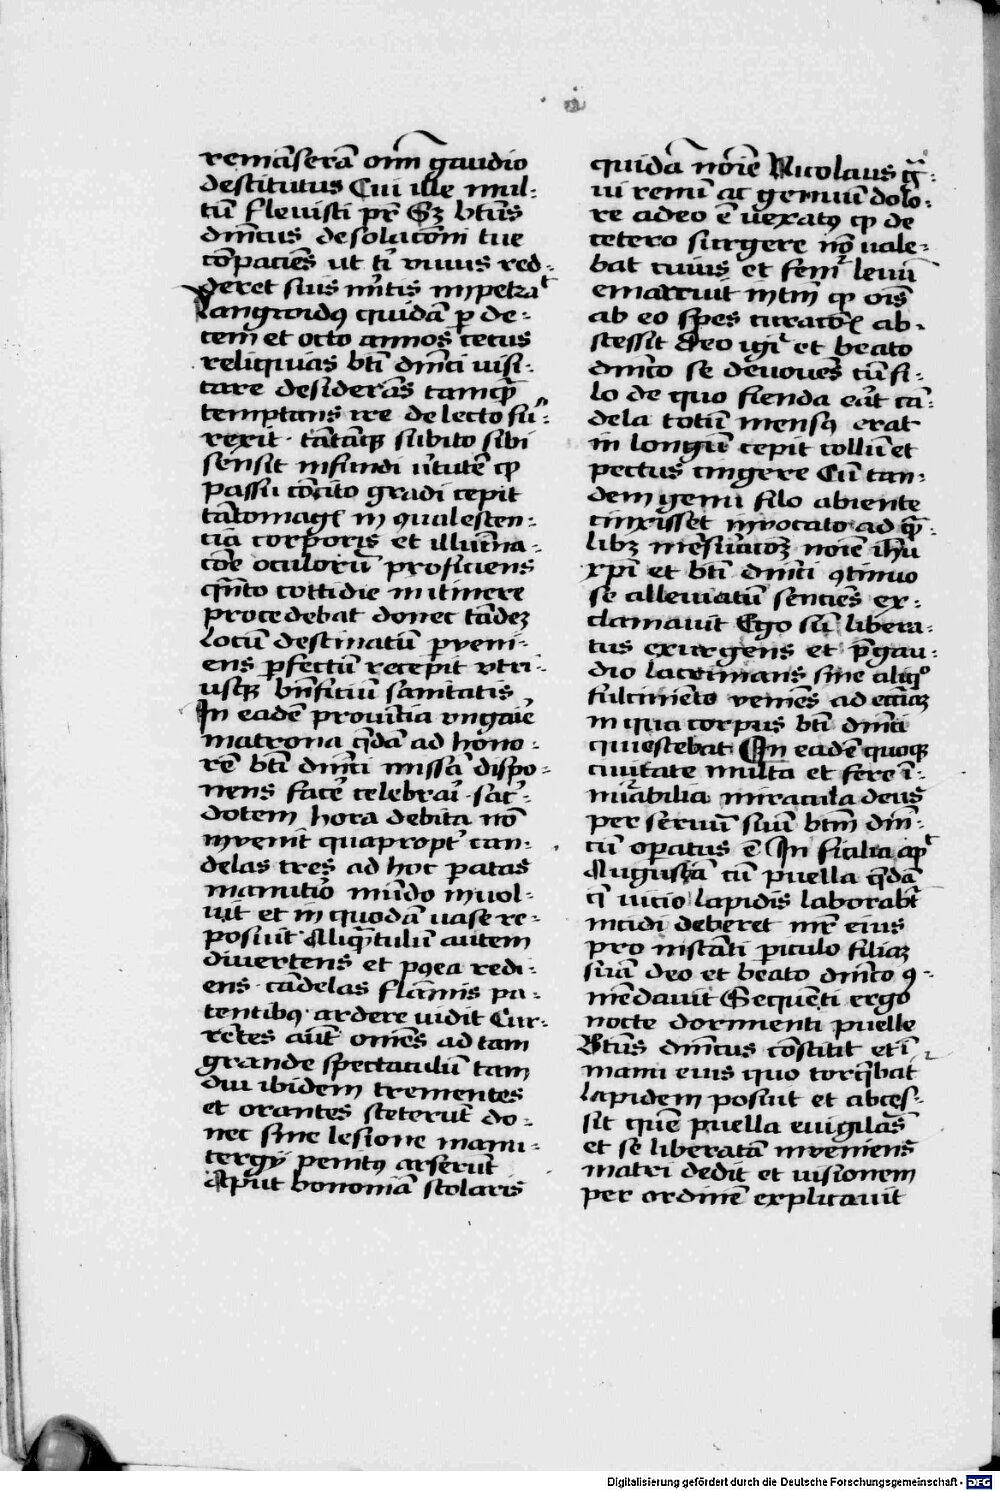 remāserā om̄ gaudio
destitutus Cui ille mul-
tū flevisti pr̄ Sꝫ bt̄us
dn̄icus desolacōni tue
cōpaciēs ut tī viuus red-
deret suis mītis impetrat
Languidꝰ quidā ꝑ de-
cem et octo annos cecus
reliquias btī dn̄ici visi-
tare desiderās tamqͣ
temptans ire de lecto su-
rexit tātāqꝫ subito sibi
sensit infundi v̄tutē qꝫ
passu cōcito gradi cepit
tātomagꝭ in ꝯualescen-
cia corporis et illumīa-
cōe oculorū proficiens
qn̄to cottidie in itinere
procedebat donec tādeꝫ
locū destinatū ꝑveni-
ens ꝑfectū recepit vtri-
usqꝫ bn̄ficiū sanitatis
In eadē provīcia vngarie
matrona qͣdā ad hono-
rē btī dn̄ici missā dispo-
nens facē celebrari sac̄-
dotem hora debita nō
invenit quapropt̄ can-
delas tres ad hoc paratas
manutio mūdo invol-
uit et in quodā uase re-
posuit Aliqͣtulū autem
divertens et pꝯea redi-
ens cādelas flāmis pa-
tentibꝰ ardere vidit Cur-
rētes aūt omēs ad tam
grande spectaculū tam
diu ibidem trementes
et orantes steterūt do-
nec sine lesione manu-
tergij penitꝰ arserūt
Aput bononiā scolaris
quidā noīe Nicolaus gͣ-
ui renū ac genuū dolo-
re adeo ē vexatꝰ qꝫ de
cetero surgere nō uale-
bat cuius et femꝰ levū
emarcuit intm̄ qꝫ oīs
ab eo spes curacōꝭ ab-
scessit Deo igiꝰ et beato
dn̄ico se devouēs cū fi-
lo de quo fienda eāt cā-
dela totū mensꝰ erat
in longū cepit collū et
pectus cingere Cū tan-
dem genu filo abiente
cinxisset invocato ad qͣ-
libꝫ mēsuracōꝫ noīe ih̄u
xpī et btī dn̄ici ꝯtinuo
se alleviatū senciēs ex-
clamavit Ego sū libera-
tus exurgens et p̄gau-
dio lacrimans sine aliqͦ
fulcimēto veniēs ad ecciāꝫ
in qua corpus btī dn̄ici
quiescebat In eadē quoqꝫ
civitate multa et fere ī-
nūabilia miracula deus
per servū suū btm̄ dn̄i-
cū operatus ē In sicilia apͭ
Augustā cū puella qͣdā
qͥ vicio lapidis laborabt̄
incidi deberet mr̄ eius
pro instāti ꝑiculo filiaꝫ
suā deo et beato dn̄ico ꝯ-
mēdavit Sequēti ergo
nocte dormienti puelle
Bt̄us dn̄icus cōstitit et ī
manu eius quo torqͣbat
lapidem posuit et abces-
sit quē puella evigilās
et se liberatā inveniens
matri dedit et visionem
per ordinē explicavit
Digitalisierung gefördert durch die Deutsche Forschungsgemeinschaft - DFG